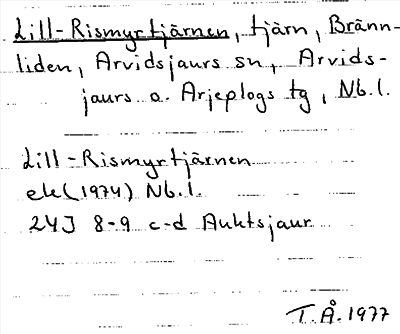 Lill-Rismyrtjärnen, tjärn, Bränn-
liden, Arvidsjaurs sn, Arvids-
jaurs o. Arjeplogs tg, Nb.l.
Lill-Rismyrtjärnen
ek (1974) Nb.l.
24J 8-9 c-d Auktsjaur
T.Å. 1977